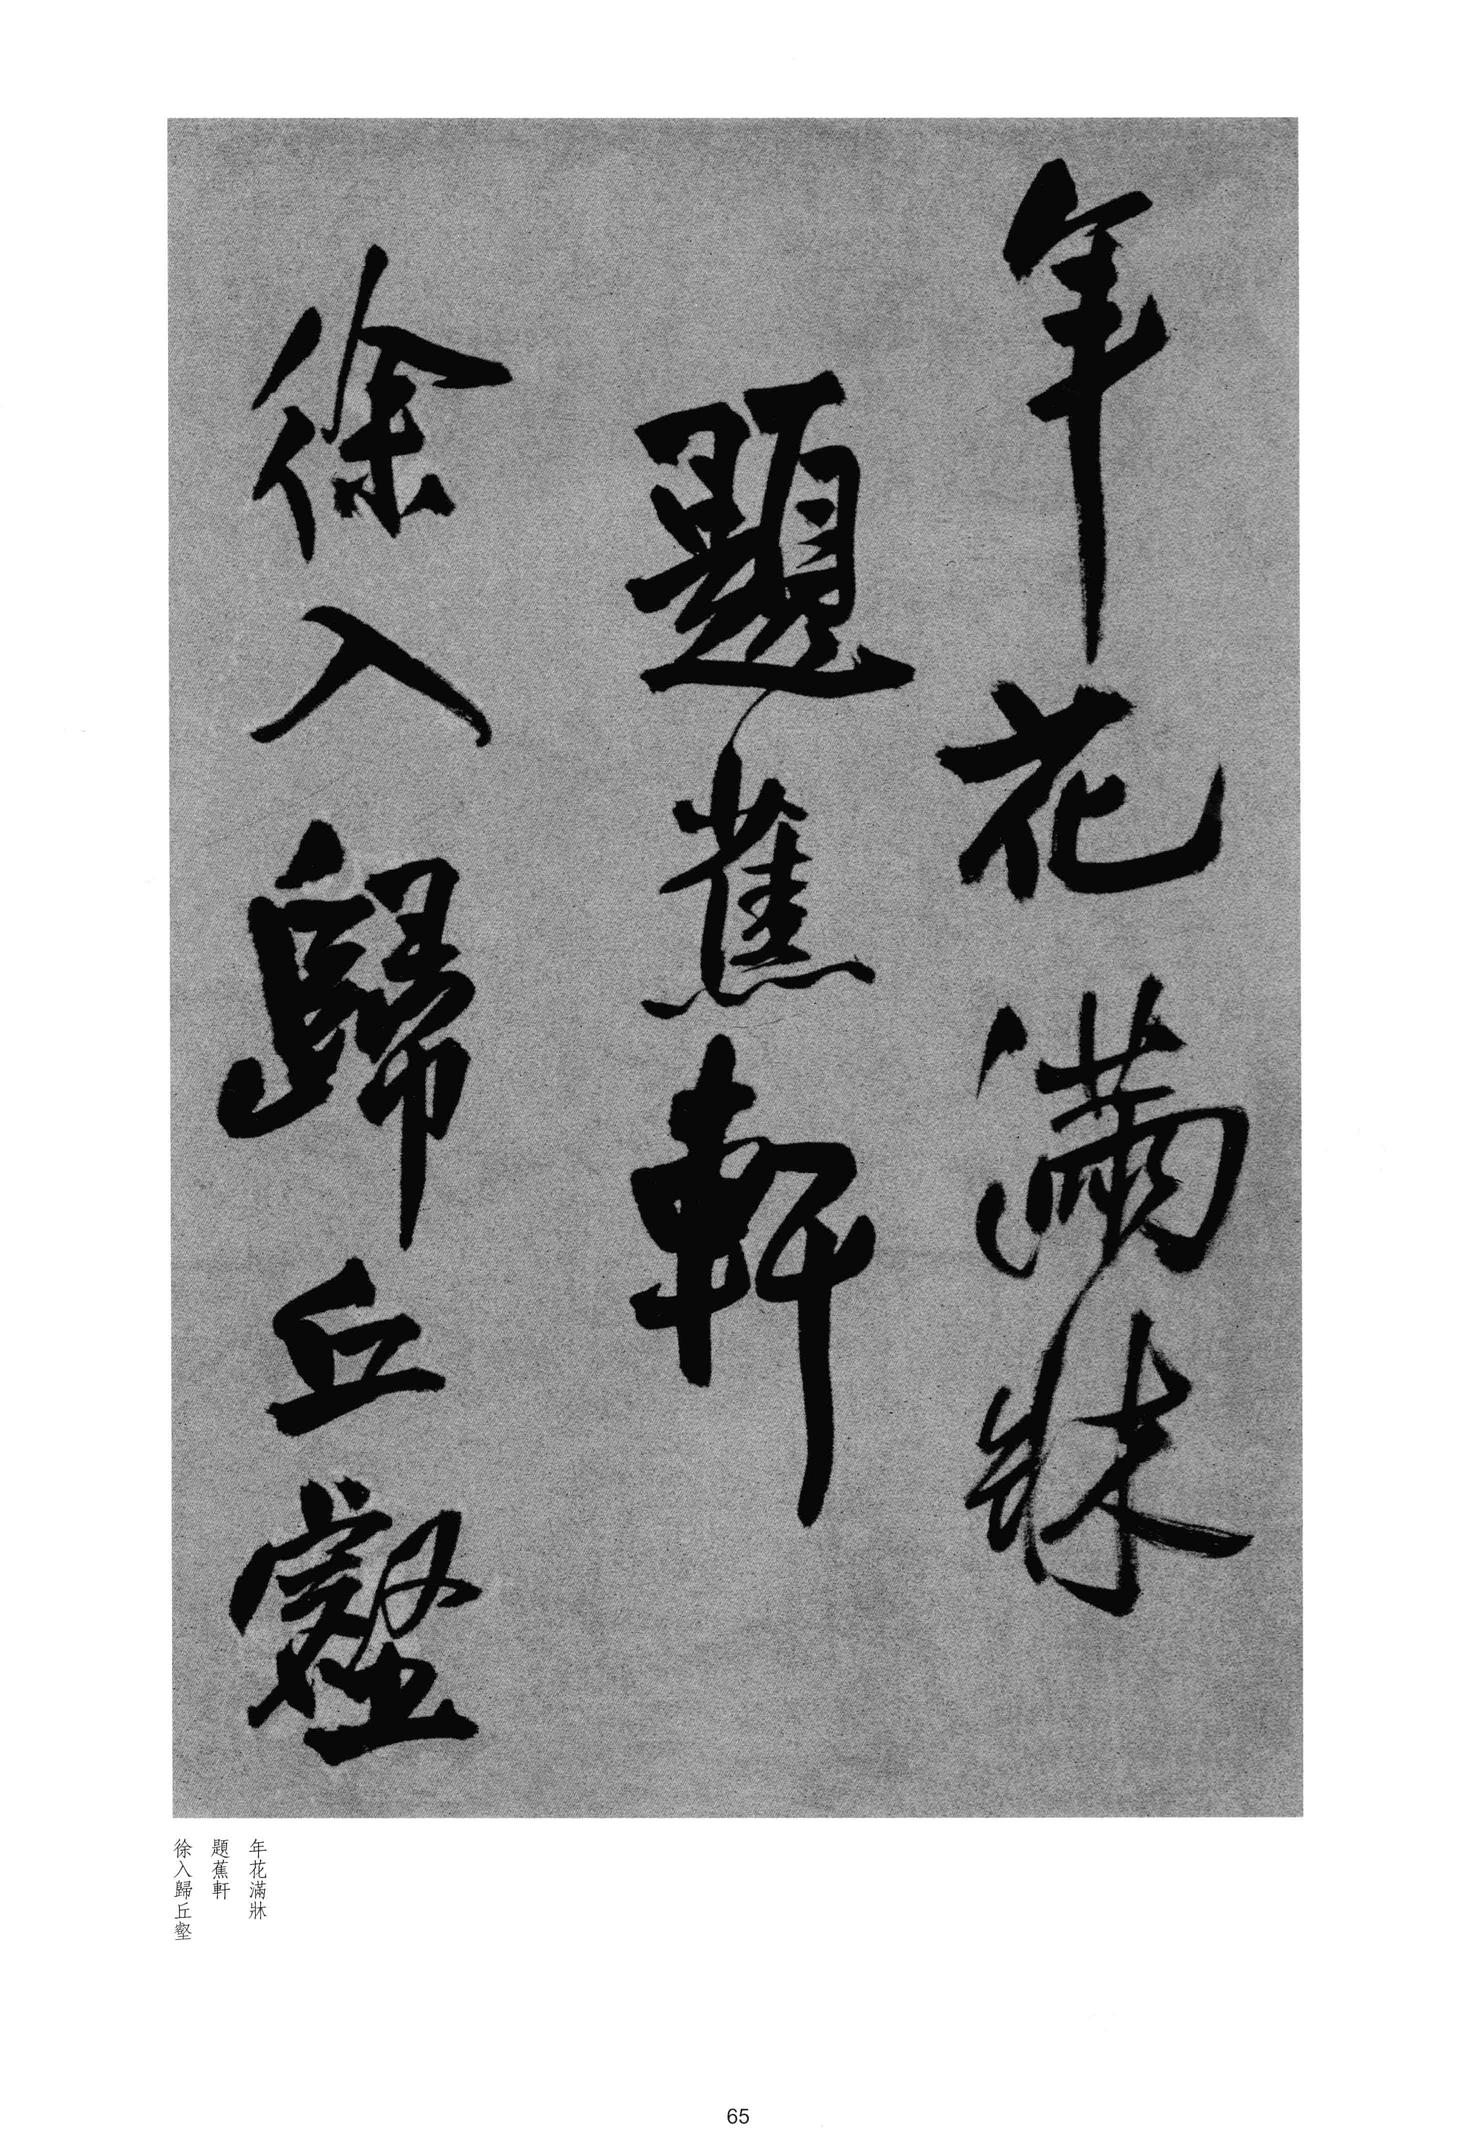 年花滿牀
題蕉軒
徐入歸丘壑
年花滿牀
題蕉軒
徐入歸丘壑
65